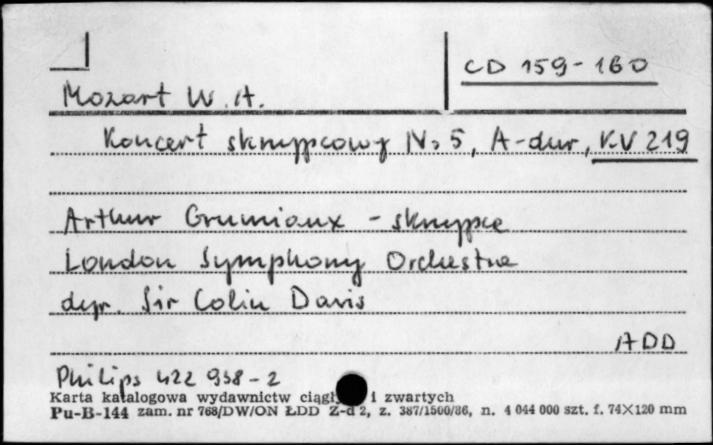 CD 159-160
Mozart W. A.
Koncert skrzypcowy Nr 5, A-dur, KV 219
Arthur Grumiaux - skrzypce
London Symphony Orchestra
dyr. Sir Colin Davis
ADD
Philips 422 938-2
Karta katalogowa wydawnictw ciągł i zwartych
Pu-B-144 zam. nr 768/DW/ON ŁDD Z-d 2, z. 387/1500/86, n. 4 044 000 szt. f. 74×120 mm